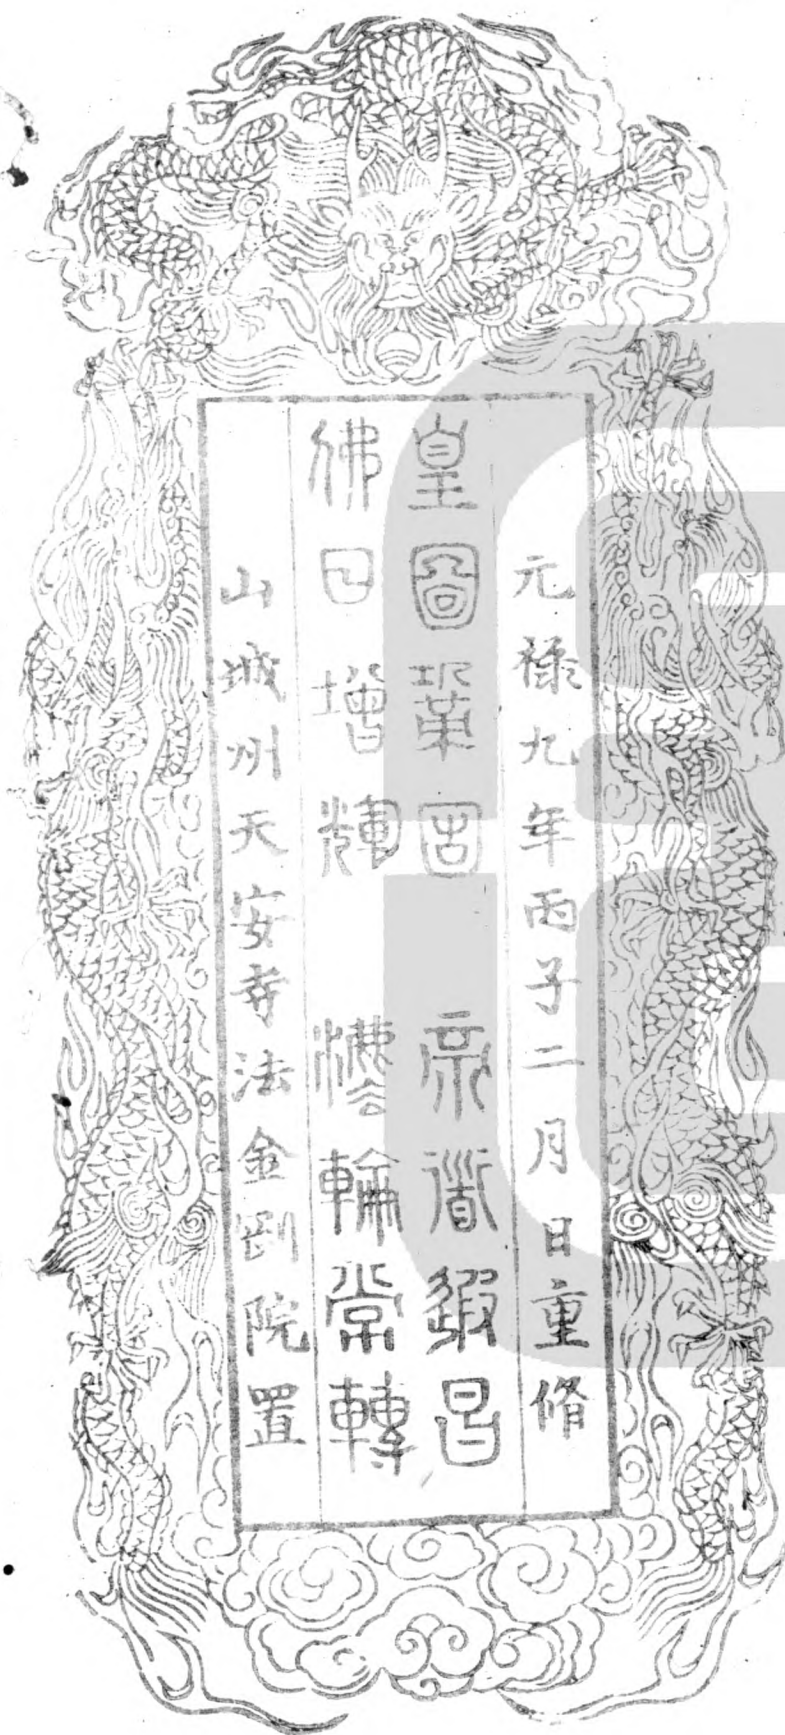 元禄九年丙子二月　日重脩
皇圖鞏固　帝道遐昌
佛日增輝　灋輪常轉
山城州天安寺法金剛院置